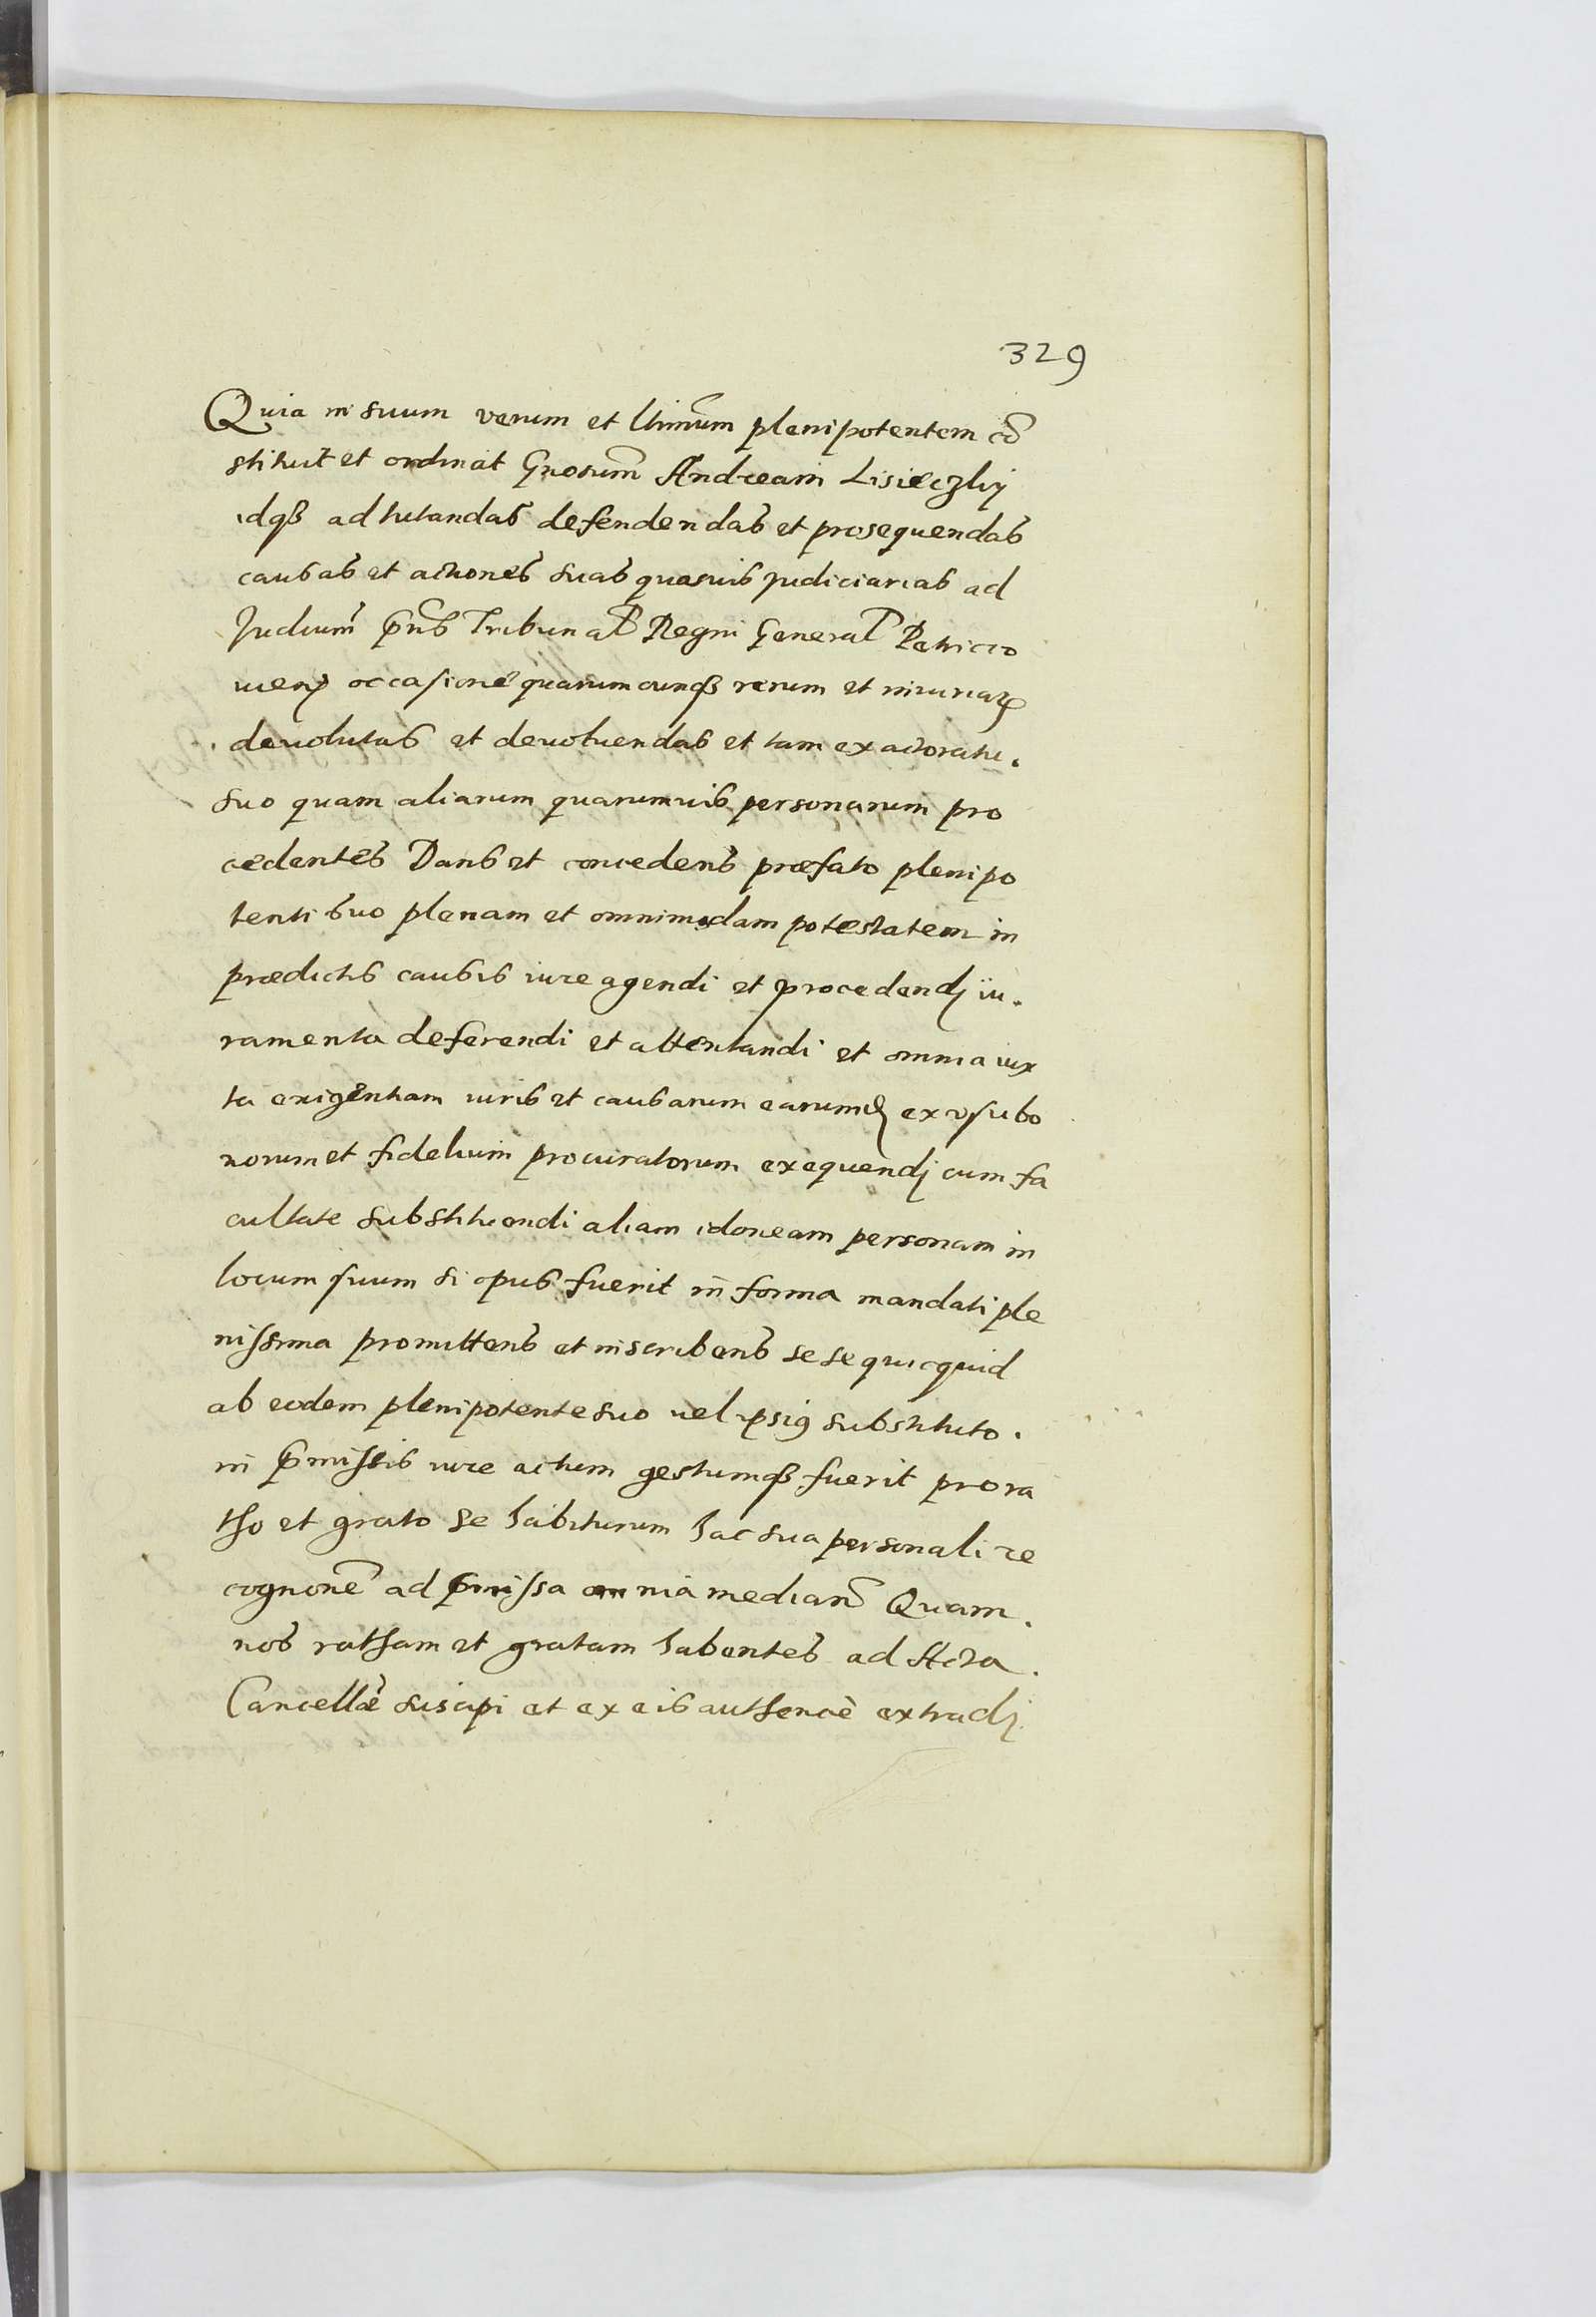 329
Quia in suum verum et ltimum plenipotentem cō
stituit et ordinat Gnosum Andream Lisieczky
idqȝ ad tutandas defendendas et prosequendas
causas et actiones suas quasvis judiciarias ad
Judium pns Tribunal Regni General Petricco
uien occasione quarumcunqȝ rerum et iniuriaꝝ
devolutas et devoluendas et tam ex actoratu
suo quam aliarum quarumvis personarum pro
cedentes Dans et concedens præfato plenipo
tenti suo plenam et omnimodam potestatem in
prædictis causis iure agendi et procedendj iu
ramenta deferendi et attentandi et omnia iux
ta exigentiam iuris et causarum earumd ex vsu bo
norum et fidelium procuratorum exequendj cum fa
cultate substituendi aliam idoneam personam in
locum suum si opus fuerit in forma mandati ple
nissima promittens et inscribens se se quicquid
ab eodem plenipotente suo uel ipsiꝰ substituto
in pmissis iure actum gestumqȝ fuerit pro ra
tho et grato se habiturum hac sua personali re
cognone ad pmissa omnia median Quam
nos ratham et gratam habentes ad Acta
Cancellæ suscipi et ex eis authence extradj